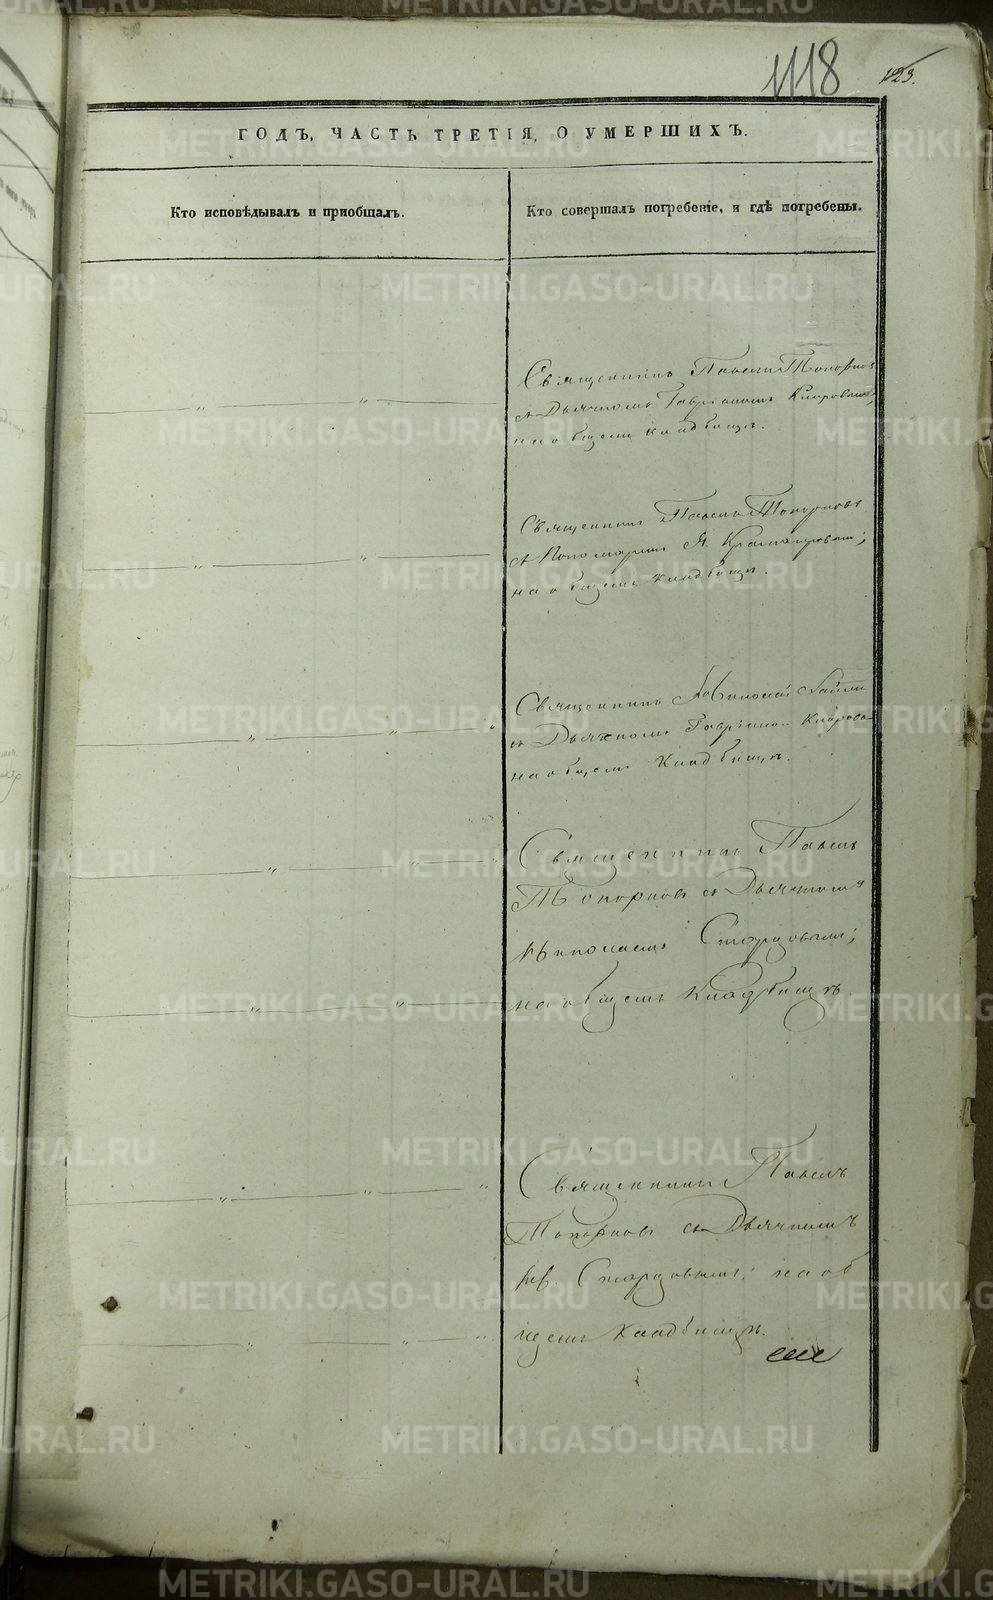 1118
123.
ГОДЪ, ЧАСТЬ ТРЕТІЯ, О УМЕРШИХЪ.
Кто исповѣдывалъ и пріобщалъ.
Кто совершалъ погребеніе, и гдѣ погребены.
Священникъ Павелъ Топорков
съ Дьячкомъ Гавріиломъ
на общемъ кладбищѣ.
Священникъ Павелъ Топорковъ
съ Пономаремъ Я.
на общемъ кладбищѣ.
Священникъ Николай
съ Дьячкомъ
на общемъ Кладбищѣ.
Священникъ Павелъ
Топорковъ съ Дьячкомъ
на общемъ Кладбищѣ
Священникъ Павелъ
Топорковъ съ Дьячкомъ
на об
щемъ Кладбищѣ.
METRIKI.GASO-URAL.RU